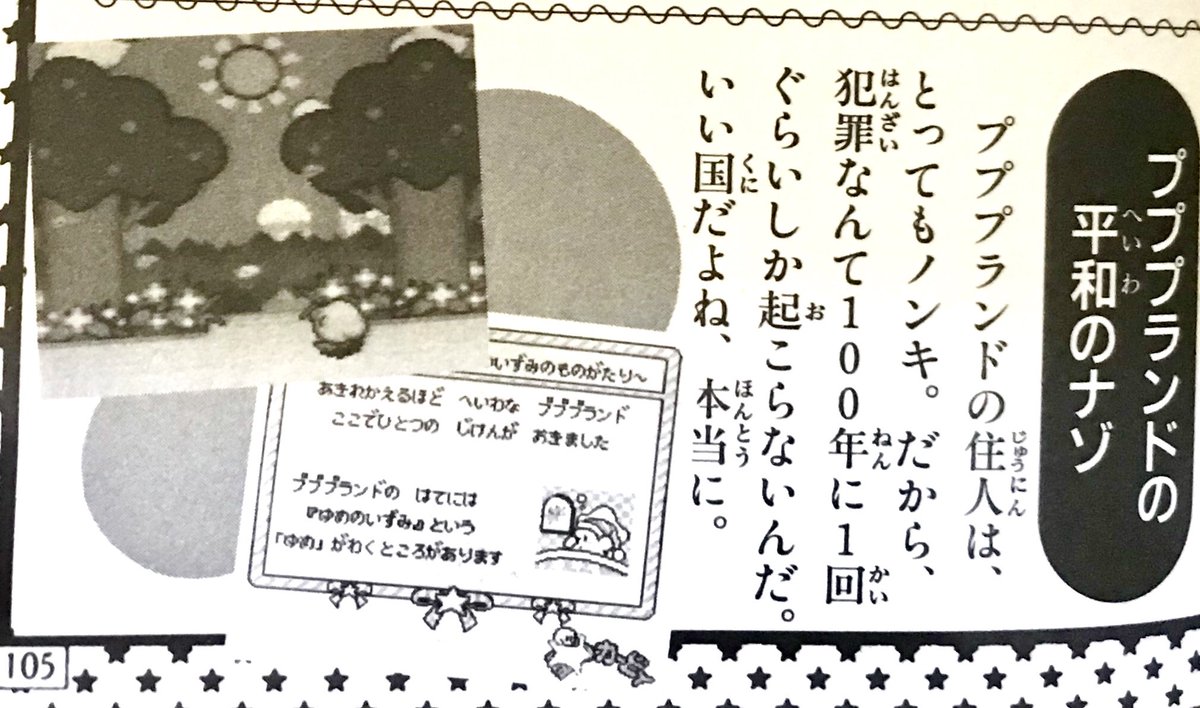 プププランドの
平和のナゾ
プププランドの住人は、
とってもノンキ。だから、
犯罪なんて100年に1回
ぐらいしか起こらないんだ。
いい国だよね、本当に。
いずみのものがたり~
あきれかえるほど へいわな プププランド
ここでひとつの じけんが おきました
プププランドの はてには
『ゆめのいずみ』という
「ゆめ」がわくところがあります
105